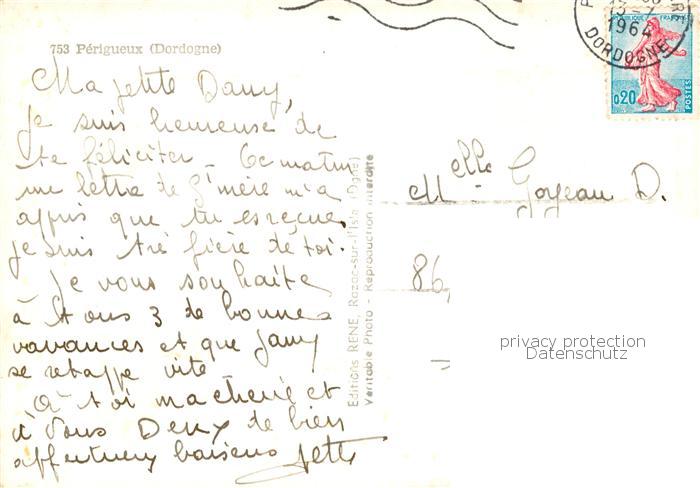 753 Périgueux (Dordogne)
Ma petite Dany,
je suis heureuse de
te féliciter _ Ce matin
une lettre de G'mère m'a
appris que tu es reçue,
je suis trè fière de toi.
Je vous souhaite
à tous 3 de bonnes
vavances et que Jany
se retappe vite
à toi ma chérie et
à vous Deux de bien
affectueux baisers
Editions RENE, Razac-sur-l'Isle (Dgne)
Véritable Photo - Reproduction interdite
13-7
1964
DORDOGNE
REPUBLIQUE FRANÇAISE
0,20
POSTES
Melle Gorjeau D.
86,
privacy protection
Datenschutz